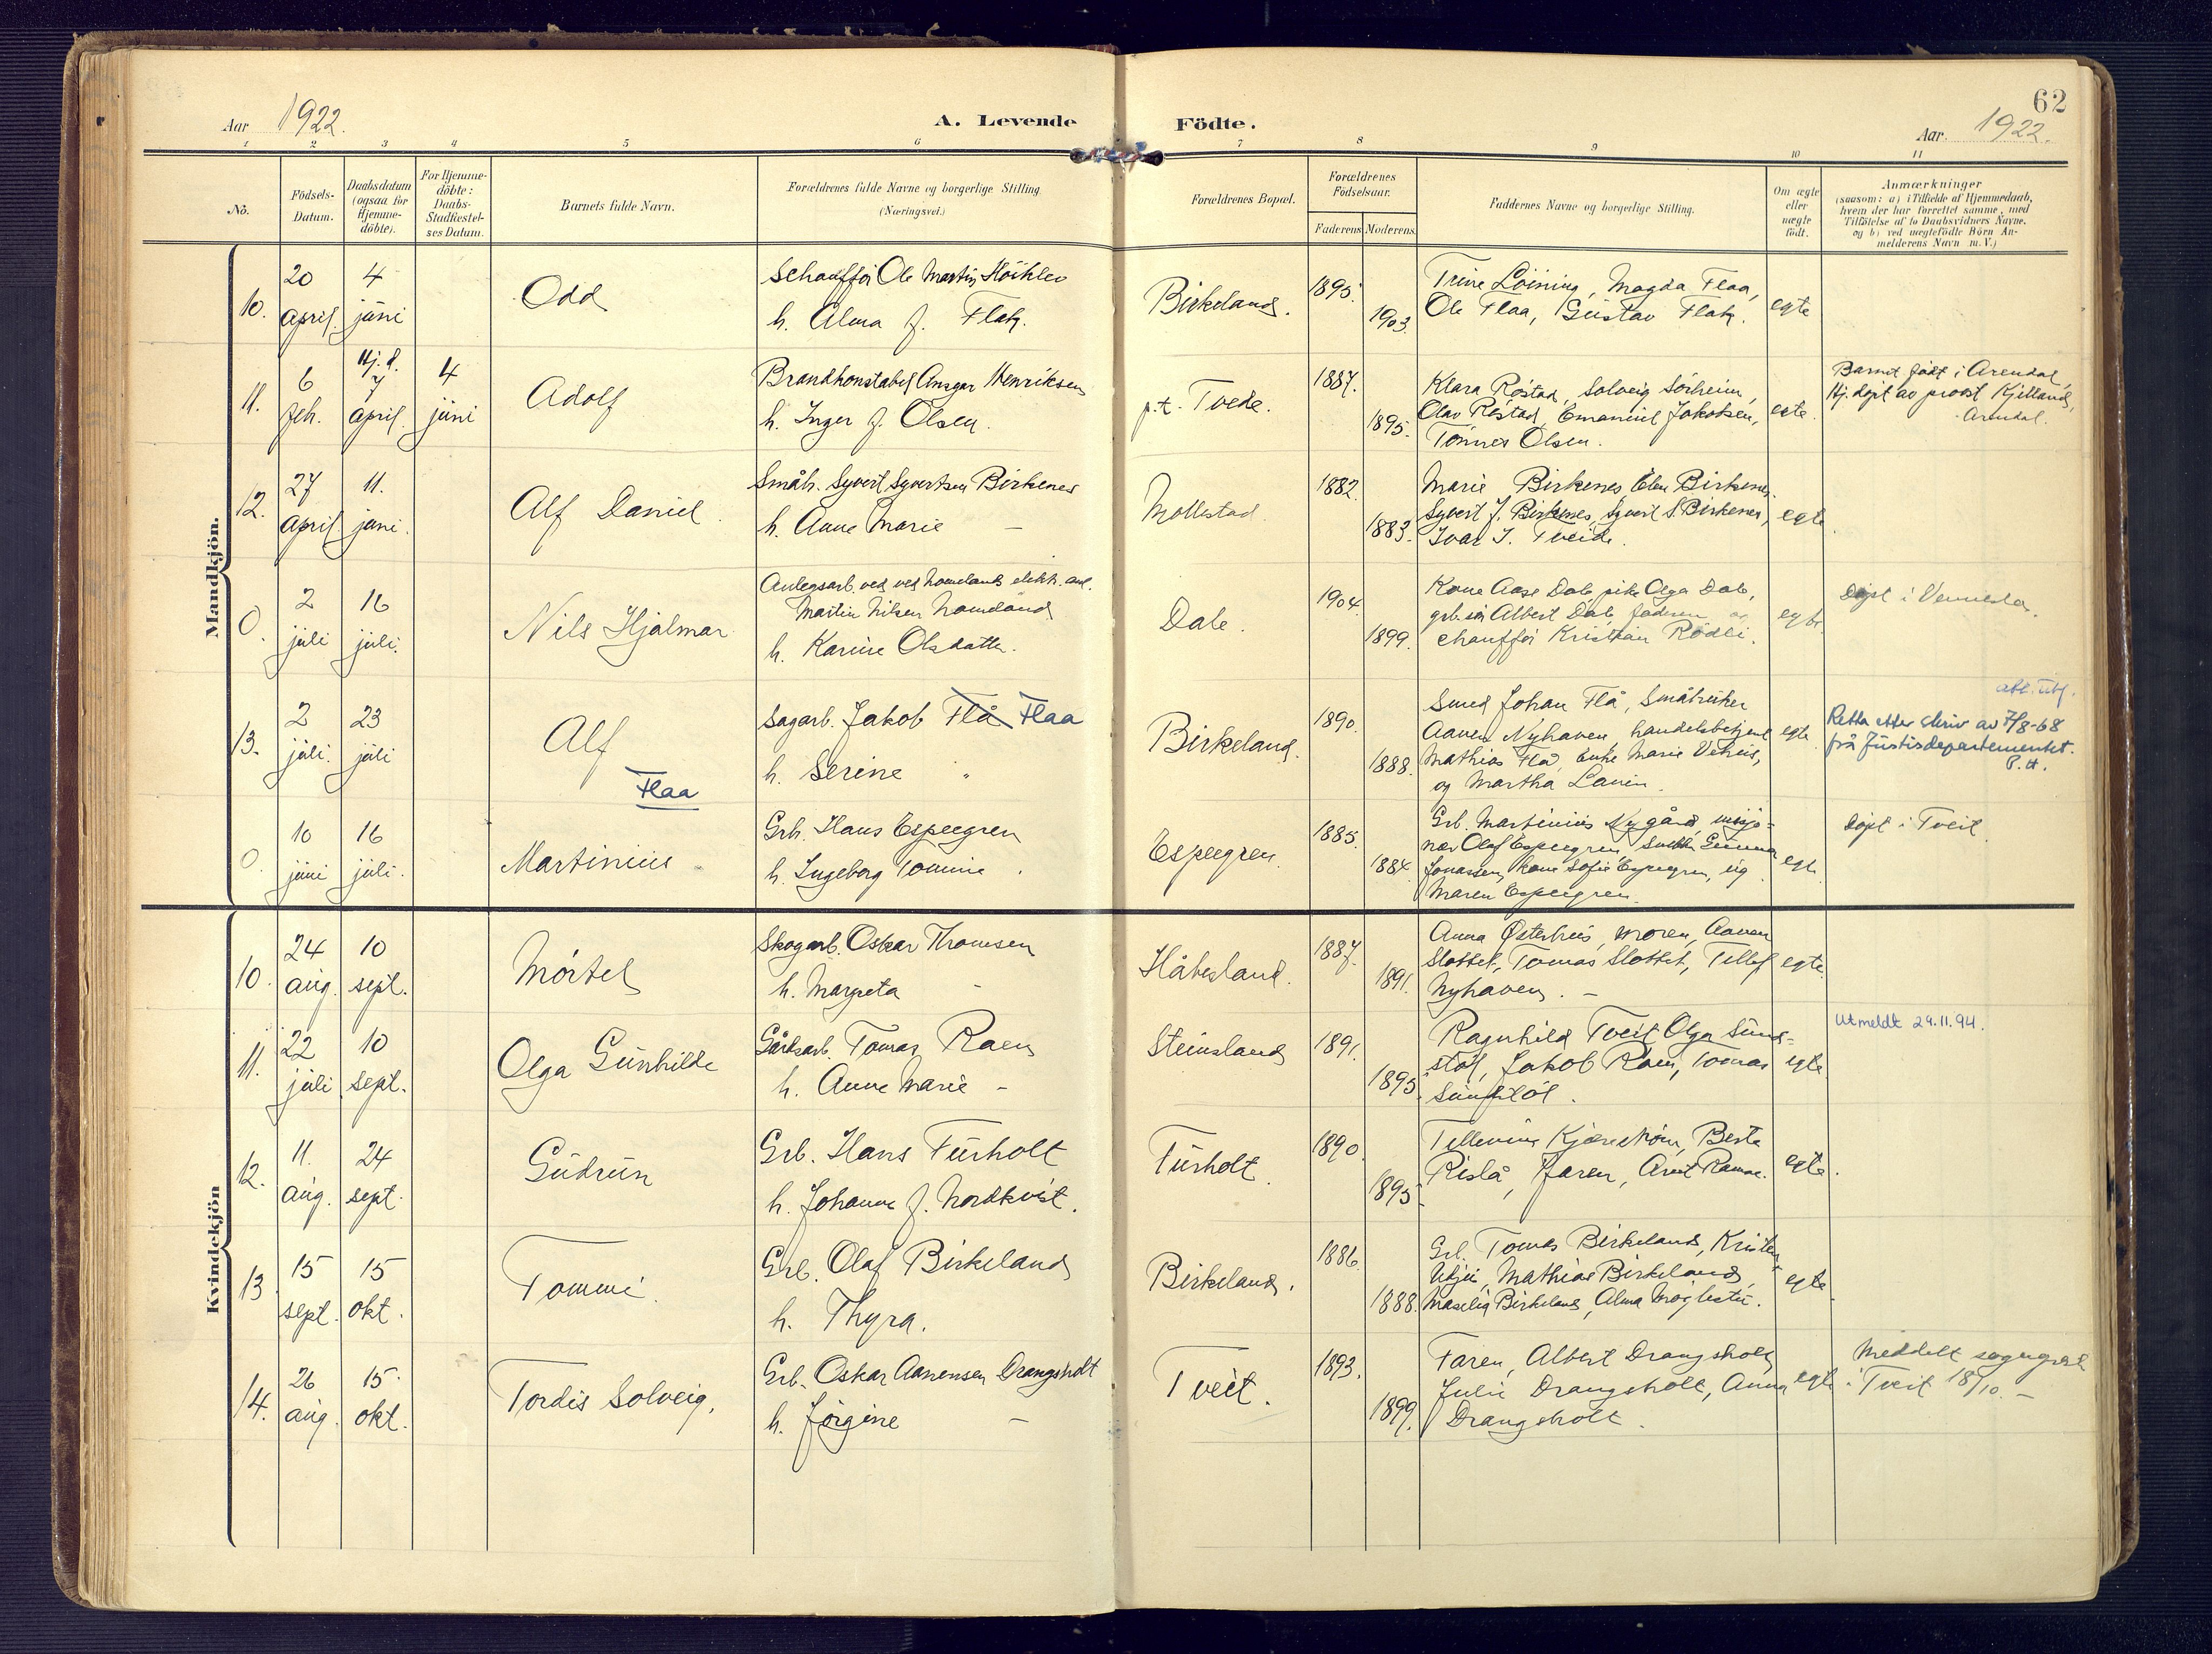 Aar 1922.
A. Levende
Födte.
62
Aar. 1922.
1 2 3 4 5 6 7 8 9 10 11
No.
Födsels-Datum.
Daabsdatum (ogsaa for Hjemme-döbte).
For Hjemme-döbte: Daabs-Stadfæstel-ses Datum.
Barnets fulde Navn.
Forældrenes fulde Navne og borgerlige Stilling.
(Næringsvei.)
Forældrenes Bopæl.
Forældrenes Födselsaar.
Faderens Moderens.
Faddernes Navne og borgerlige Stilling.
Om ægte eller uægte födt.
Anmærkninger
(saasom: a) i Tilfælde af Hjemmedaab,
hvem der har forrettet samme, med
Tilföielse af to Daabsvidners Navne,
og b) ved uægtefödte Börn An-
melderens Navn m. V.)
Mandkjön.
10. 20 april 4 juni
Odd
Schauffør Ole Martin
h. Alma f. Flak.
Birkeland.
1895.
1903.
Trine Løining, Magda Flaa,
Ole Flaa, Gustav Flak.
egte
11. 6 feb. Hj.d. 7 april. 4 juni
Adolf
Brandkonstabel Ansgar Henriksen
h. Inger f. Olsen.
p.t. Tvede.
1887.
1895.
Klara Røstad, Solveig Sørheim,
Olav Røstad, Emanuel Jakobsen,
Tønnes Olsen.
egte.
Barnet født i Arendal,
Hj.døpt av prost Kjelland,
Arendal.
12. 27 april 11. juni.
Alf Daniel
Småbr. Syvert Syvertsen Birkenes
h. Anne Marie —
Mollestad
1882.
1883.
Marie Birkenes, Elen Birkenes,
Syvert J. Birkenes, Syvert S. Birkenes,
Ivar J. Tveide.
egte
0. 2 juli 16 juli.
Nils Hjalmar
Anlegsarb. ved elektr. anl.
Martin Nilsen
h. Karine Olsdatter.
Dale.
1904.
1899.
Kone Aase Dale, pike Olga Dale,
grb.søn Albert Dale, faderen og
chauffør Kristian
egte.
Døpt i Vennesla.
13. 2 juli. 23 juli
Alf
Flaa
Sagarb. Jakob Flå Flaa
h. Serine "
Birkeland.
1890.
1888.
Smed Johan Flå, Småbruker
Aanen Nyhaven, handelsbetjent
Mathias Flå, Enke Marie
og Martha
egte
att. utf.
Retta etter skriv av 7/8-68
frå Justisdepartementet.
P.H.
0. 10 juni 16 juli.
Martinius
Grb. Hans Espegren
h. Ingeborg Tomine
Espegren
1885.
1884.
Grb. Martinius Nygård, misjo-
nær Olaf Espegren,
Jonassen, kone Sofie Espegren, ug
Maren Espegren.
egte
Døpt i Tveit
Kvindekjön
10. 24 aug. 10 sept.
Mørtel
Skogarb. Oskar Thomsen
h. Margreta —
Håbesland.
1887.
1891.
Anna Østerhus, moren, Aanen
Slottet, Tomas Slottet, Tellef
Nyhaven. —
egte.
11. 22 juli 10 sept.
Olga Gunhilde
Gårdsarb. Tomas Raen
h. Anne Marie —
Steinsland
1891.
1895.
Ragnhild Tveit, Olga Sund-
støl, Jakob Raen, Tomas
Sundstøl.
egte
Utmeldt 29.11.94.
12. 11. aug. 24 sept.
Gudrun
Grb. Hans Furholt
h. Johanne f. Nordkvist.
Furholt.
1890.
1895
Kjærestrøm, Berte
Rislå, Faren,
egte.
13 15 sept. 15 okt.
Tommi.
Grb. Olaf Birkeland
h. Thyra.
Birkeland.
1886.
1888.
Grb. Tomas Birkeland, Kristen
Mathias Birkeland,
Birkeland, Alma
egte.
14. 26 aug. 15. okt.
Tordis Solveig,
Grb. Oskar Aanensen Drangsholt
h. Jørgine —
Tveit.
1893.
1899.
Faren, Albert Drangsholt,
Julie Drangsholt, Anna
Drangsholt.
egte
Meddelt sogneprest
i Tveit 18/10. —